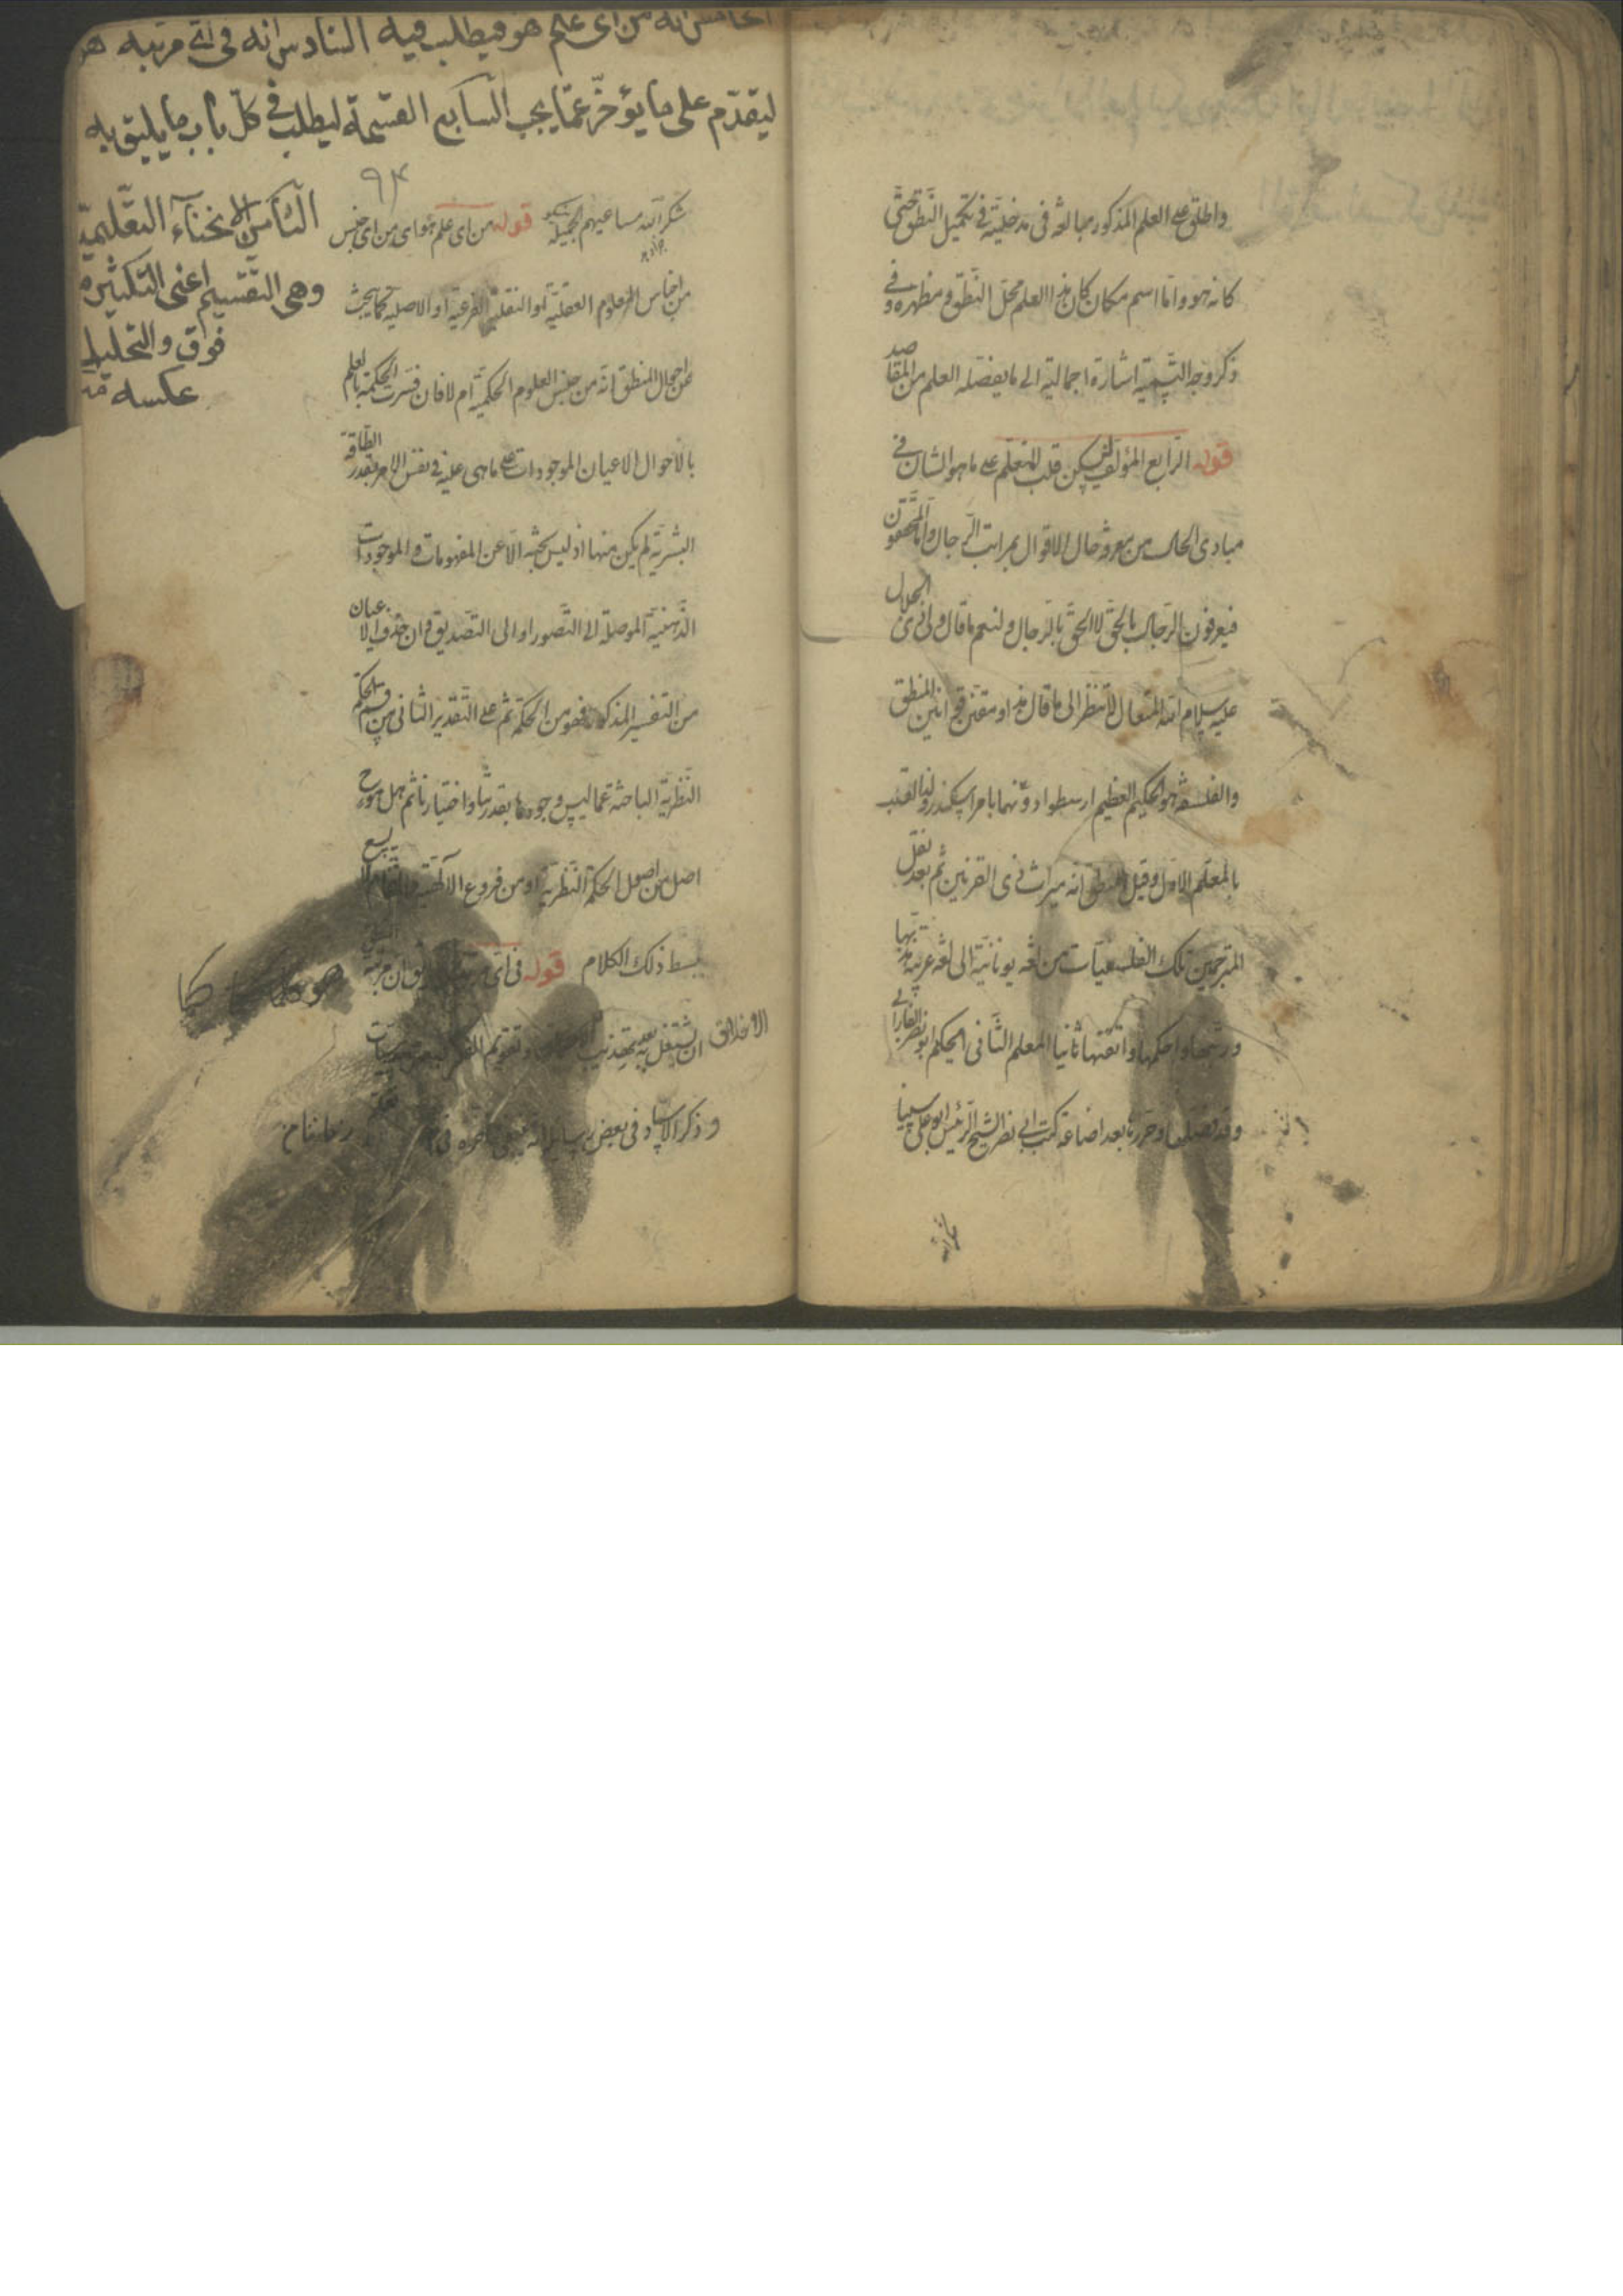 واطلق على العلم المذكور مبالغة فى مدخليته فى تكميل النطق حتى
كانه هو واما اسم مكان كان هذا العلم محل النطق و مظهره و فى
ذكر وجه التسمية اشارة اجمالية الى ما يفصله العلم من المقاصد
قوله الرابع المؤلف ليسكن قلب المتعلم على ما هو الشان فى
مبادى الحال من معرفة حال الاقوال بمراتب الرجال واما المحققون
فيعرفون الرجال بالحق لا الحق بالرجال ولنعم ما قال ولى ذى الجلال
عليه سلام الله المتعال لا تنظر الى قال و مقنن قوانين المنطق
والفلسفة هو الحكيم العظيم ارسطو دونهما بامر اسكندر ولهذا لقب
بالمعلم الاول وقيل للمنطق انه ميراث ذى القرنين ثم بعد نقل
المترجمين تلك الفلسفيات من لغة يونانية الى لغة عربية هذبها
ورتبها واحكمها واتقنها ثانيا المعلم الثانى الحكيم ابو نصر الفارابى
وقد فصلها وحررها بعد اضاعة كتب ابى نصر الشيخ الرئيس ابو على سينا
الخامس انه من اى علم هو فيطلب فيه السادس انه فى اى مرتبه هو
ليقدم على ما يؤخر عما يجب السابع القسمة ليطلب فى كل باب ما يليق به
الثامن الانحاء التعليمية
وهى التقسيم اعنى التكثير من
فوق والتحليل
عكسه
٩٤
شكر الله مساعيهم الجميلة قوله من اى علم هو اى من اى جنس
من اجناس العلوم العقلية او النقلية الفرعية او الاصلية كما يبحث
عن حال المنطق انه من جنس العلوم الحكمية ام لا فان فسرت الحكمة بالعلم
بالاحوال الاعيان الموجودات على ما هى عليه فى نفس الامر بقدر الطاقة
البشرية لم يكن منها اذ ليس بحثه الا عن المفهومات و الموجودات
الذهنية الموصلة الى التصور او الى التصديق وان حذف الاعيان
من التفسير المذكور فهو من الحكمة ثم على التقدير الثانى من الحكمة
النظرية الباحثة عما ليس وجودها بقدرتنا واختيارنا ثم هل هو ح
اصل من اصول الحكمة النظرية او من فروع الالهى والمقام لا يسع
بسط ذلك الكلام قوله فى اى
ان يشتغل به بعد تهذيب الاخلاق و تقويم الفكر
وذكر الاستاد فى بعض رسائله